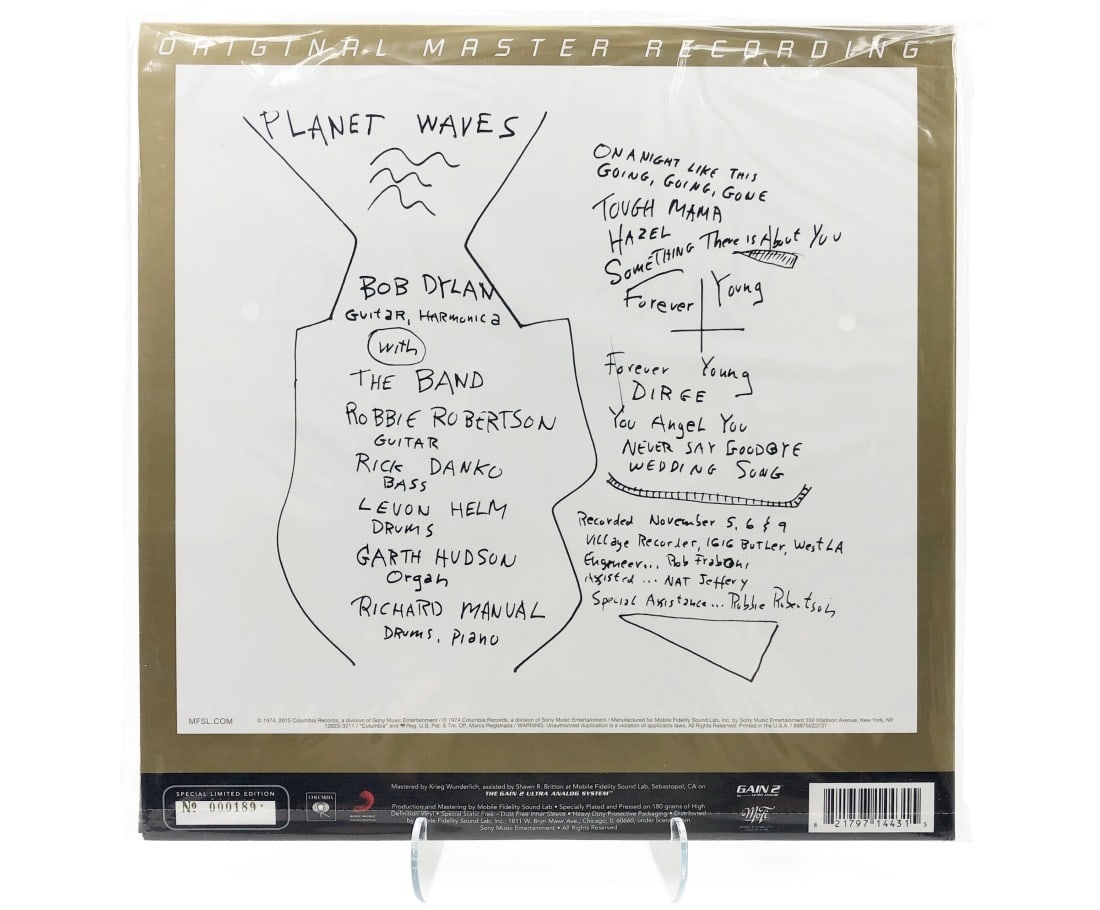 ORIGINAL MASTER RECORDING
PLANET WAVES
BOB DYLAN
GUITAR, HARMONICA
With
THE BAND
ROBBIE ROBERTSON
GUITAR
RICK DANKO
BASS
LEVON HELM
DRUMS
GARTH HUDSON
Organ
RICHARD MANUAL
DRUMS, PIANO
ON A NIGHT LIKE THIS
GOING, GOING, GONE
TOUGH MAMA
HAZEL
SOMETHING There is About You
Forever Young
Forever Young
DIRGE
You Angel You
NEVER SAY GOODBYE
WEDDING SONG
Recorded November 5, 6 & 9
Village Recorder, 1616 BUTLER, West LA
Engineer... Rob Fraboni
Assisted ... NAT Jeffery
Special Assistance... Robbie Robertson
MFSL.COM
© 1974, 2015 Columbia Records, a division of Sony Music Entertainment / ℗ 1974 Columbia Records, a division of Sony Music Entertainment / Manufactured for Mobile Fidelity Sound Lab, Inc. by Sony Music Entertainment 550 Madison Avenue, New York, NY
10022-3211 / "Columbia" and Reg. U.S. Pat. & Tm. Off. Marca Registrada / WARNING: Unauthorized duplication is a violation of applicable laws. All Rights Reserved. Printed in the U.S.A. / 88875022731
SPECIAL LIMITED EDITION
Nº 000189
COLUMBIA
SONY MUSIC
Mastered by Krieg Wunderlich, assisted by Shawn R. Britton at Mobile Fidelity Sound Lab, Sebastopol, CA on
THE GAIN 2 ULTRA ANALOG SYSTEM™
Production and Mastering by Mobile Fidelity Sound Lab • Specially Plated and Pressed on 180 grams of High
Definition Vinyl • Special Static Free - Dust Free Inner Sleeve • Heavy Duty Protective Packaging • Distributed
by Mobile Fidelity Sound Lab, Inc., 1811 W. Bryn Mawr Ave., Chicago, IL 60660, under license from
Sony Music Entertainment • All Rights Reserved
GAIN 2
MoFi
8 21797 14431 5